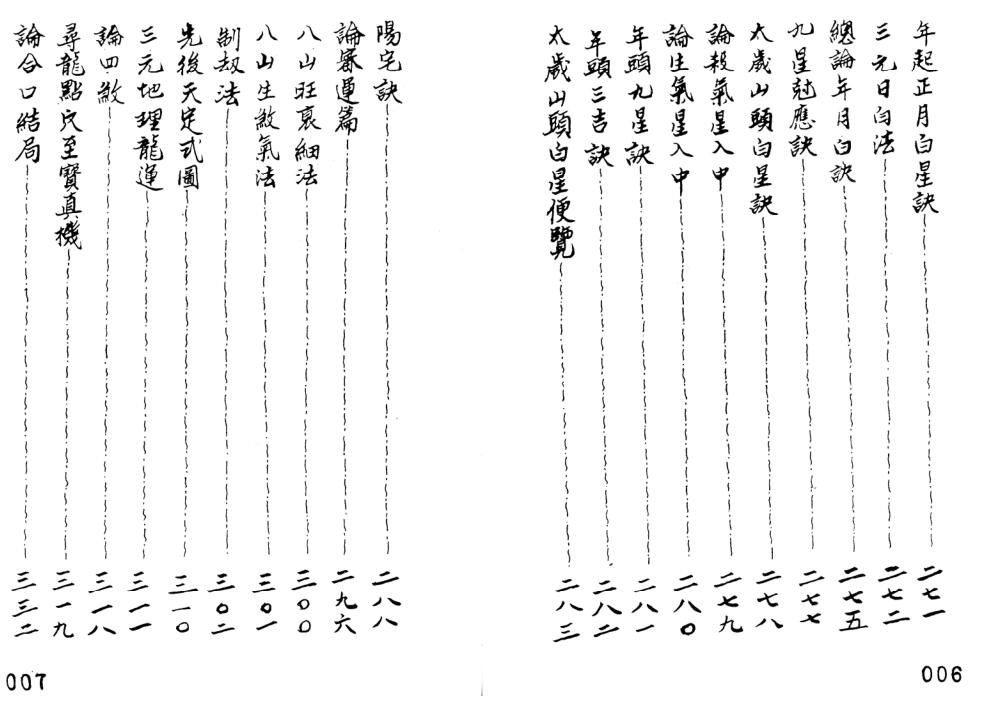 年起正月白星訣 二七一
三元日白法 二七二
總論年月白訣 二七五
九星尅應訣 二七七
太歲山頭白星訣 二七八
論殺氣星入中 二七九
論生氣星入中 二八〇
年頭九星訣 二八一
年頭三吉訣 二八二
太歲山頭白星便覽 二八三
006
陽宅訣 二八八
論審運篇 二九六
八山旺衰細法 三〇〇
八山生煞氣法 三〇一
制劫法 三〇二
先後天定式圖 三一〇
三元地理龍運 三一一
論四煞 三一八
尋龍點穴至寶真機 三一九
論合口結局 三三二
007